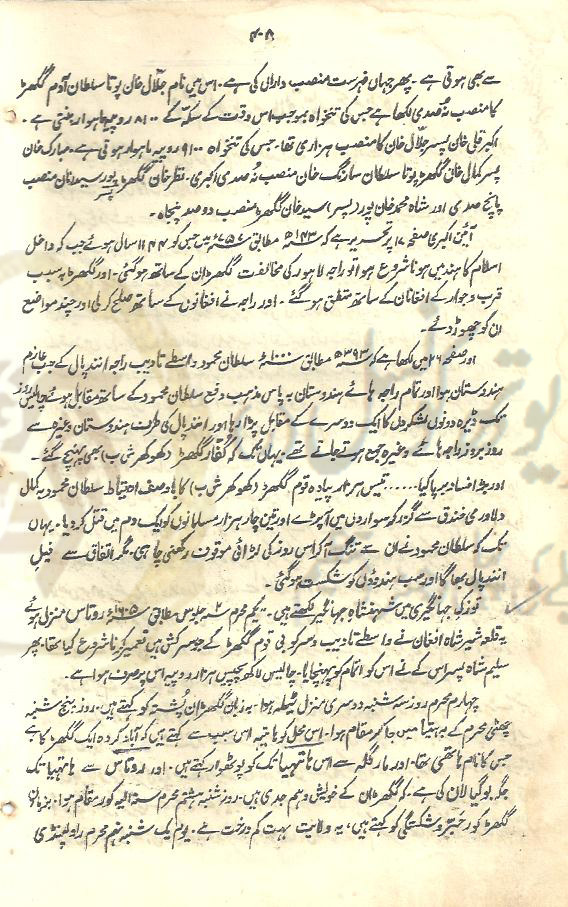 ۴۰۸
سے بھی ہوتی ہے ۔ پھر جہاں فہرست منصب داراں کی ہے ۔ اس میں نام جلال خان پوتا سلطان آدم گکھڑ
کا منصب نُہ صدی لکھا ہے جس کی تنخواہ بموجب اس وقت کے سکہ کے ۸۱۰۰ روپیہ ماہوار بنتی ہے ۔
اکبر قلی خان پسر جلال خان کا منصب ہزاری تھا ۔ جس کی تنخواہ ۹۱۰۰ روپیہ ماہوار ہوتی ہے ۔ مبارک خان
پسر کمال خان گکھڑ پوتا سلطان سارنگ خان منصب نُہ صدی اکبری ۔ نظر خان گکھڑ پور سید خان منصب
پسر
پانچ صدی اور شاہ محمد خان پور (پسر) سید خان گکھڑ منصب دو صد پنجاہ ۔
آئین اکبری صفحہ ۱۷ پر تحریر ہے کہ ۱۴۳ھ مطابق ۷۵۷ء میں جس کو ۱۱۴۴ سال ہوئے جب کہ داخل
اسلام کا ہند میں ہونا شروع ہوا تو راجہ لاہور کی مخالفت گکھڑان کے ساتھ ہو گئی ۔ اور گکھڑ بہ سبب
قرب و جوار کے افغانان کے ساتھ متفق ہو گئے ۔ اور راجہ نے افغانوں کے ساتھ صلح کر لی اور چند مواضع
ان کو چھوڑ دئے ۔
اور صفحہ ۲۶ میں لکھا ہے کہ ۳۹۳ھ مطابق ۱۰۰۰ء سلطان محمود واسطے تادیب راجہ انند پال کے جب عازم
ہندوستان ہوا اور تمام راجہ ہائے ہندوستان بہ پاس مذہب دفع سلطان محمود کے ساتھ مقابل ہوئے چالیس روز
تک ڈیرہ دونوں لشکروں کا ایک دوسرے کے مقابل پڑا رہا اور انند پال کی طرف ہندوستان وغیرہ سے
روز بروز راجہ ہائے وغیرہ جمع ہوتے جاتے تھے یہاں تک کہ کفار گکھڑ (کھوکھر ش ب) بھی پہنچ گئے ۔
اور بڑا فساد برپا کیا ...... تیس ہزار پیادہ قوم گکھڑ (کھوکھر ش ب) کا باوصف احتیاط سلطان محمود بہ کمال
دلاوری خندق سے گزر کر سواروں میں آپڑے اور تین چار ہزار مسلمانوں کو ایک دم میں قتل کر دیا ۔ یہاں
تک کہ سلطان محمود نے ان سے تنگ آ کر اس روز کی لڑائی موقوف رکھنی چاہی ۔ مگر اتفاق سے فیل
انند پال بھاگا اور سب ہندوؤں کو شکست ہو گئی ۔
توزک جہانگیری میں شہنشاہ جہانگیر لکھتے ہیں ۔ "یکم محرم ۲ جلوس مطابق ۱۶۰۵ء روتاس منزلی ہوئے
یہ قلعہ شیر شاہ افغان نے واسطے تادیب و سرکوبی قوم گکھڑ کے جو سرکش ہیں تعمیر کرنا شروع کیا تھا ۔ پھر
سلیم شاہ پسر اس کے نے اس کو اتمام کو پہنچایا ۔ چالیس لاکھ پچیس ہزار روپیہ اس پر صرف ہوا ہے ۔
چہارم محرم روز سہ شنبہ دوسری منزل ٹیلہ ہوا ۔ بہ زبان گکھڑان پشتہ کو کہتے ہیں ۔ روز پنج شنبہ
چھٹی محرم کے ہتیا میں جا کر مقام ہوا ۔ اس محل کو ہاتیہ اس سبب سے کہتے ہیں کہ آباد کردہ ایک گکھڑ کا ہے
جس کا نام ہاتھی تھا ۔ اور مارگلہ سے اس ہاتھیا تک کو پوٹھوار کہتے ہیں ۔ اور روتاس سے ہاتھیا تک
جگہ بوگیالان کی ہے ۔ کہ گکھڑان کے خویش و ہم جدی ہیں ۔ روز شنبہ ہشتم محرم سنہ الیہ کور مقام ہوا ۔ بزبان
گکھڑ کور و شکستگی کو کہتے ہیں، یہ ولایت بہت کم درخت ہے ۔ یوم یک شنبہ نہم محرم راولپنڈی